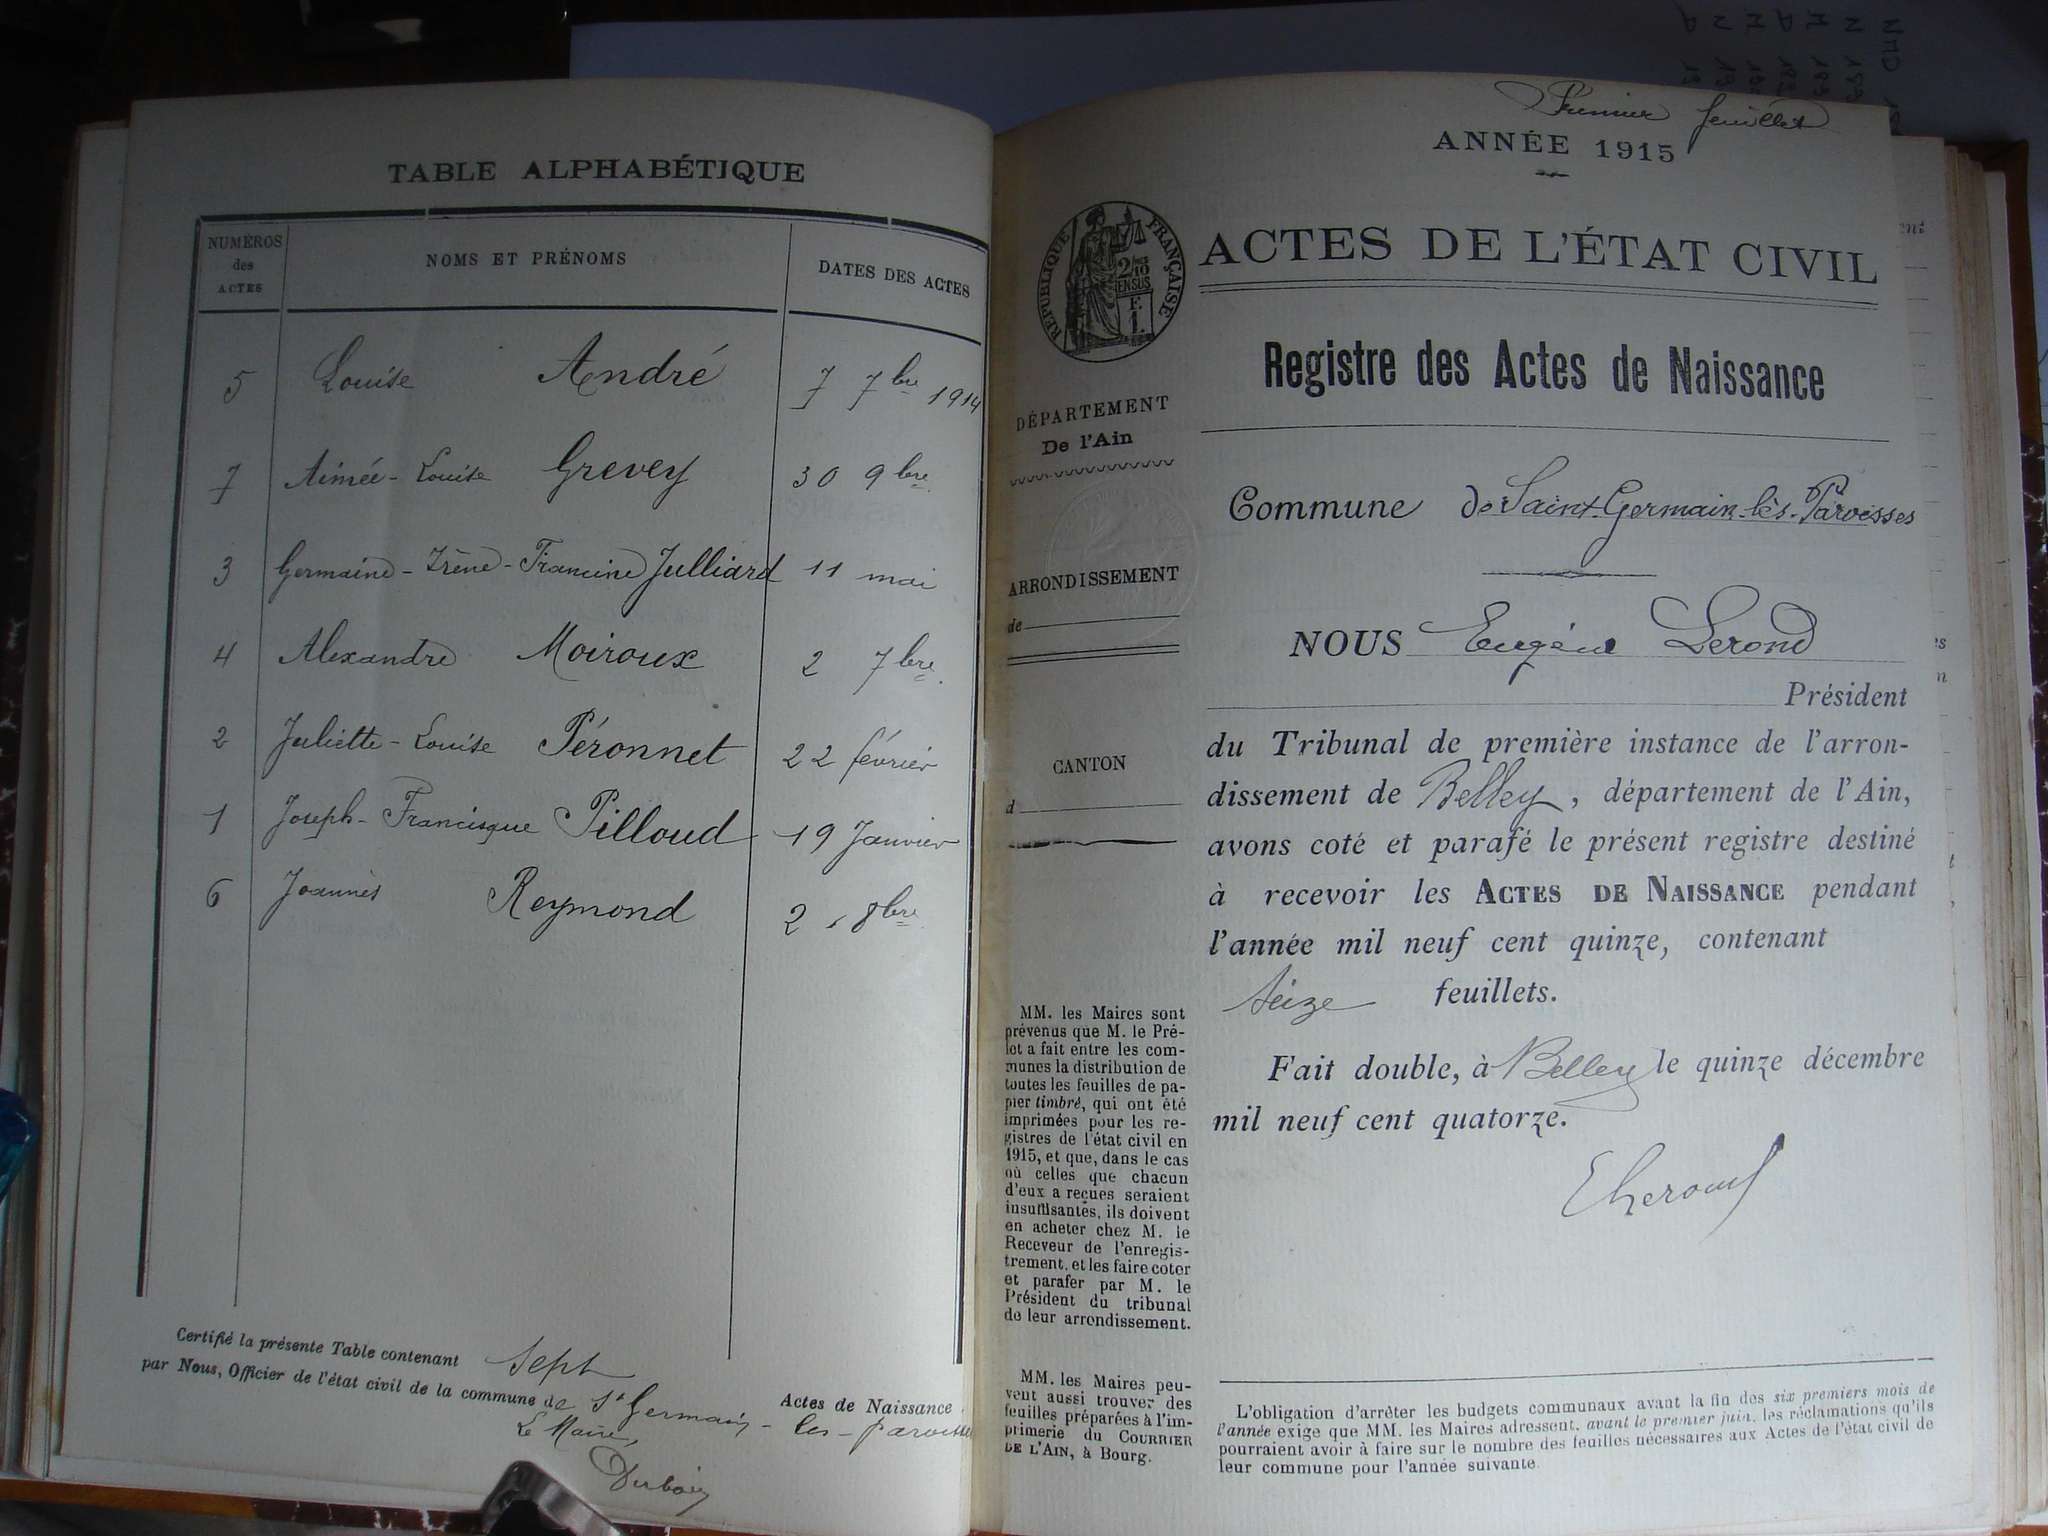 TABLE ALPHABÉTIQUE
NUMÉROS des ACTES
NOMS ET PRÉNOMS
DATES DES ACTES
5 Louise André 7 7bre 1914
7 Aimée-Louise Grevey 30 9bre
3 Germaine-Irène-Francine Julliard 11 mai
4 Alexandre Moiroux 2 7bre
2 Juliette-Louise Péronnet 22 février
1 Joseph-Francisque Pilloud 19 Janvier
6 Joannès Reymond 2 8bre
Certifié la présente Table contenant Sept Actes de Naissance
par Nous, Officier de l'état civil de la commune de St Germain-les-paroisses
Le Maire,
Premier feuillet
ANNÉE 1915
RÉPUBLIQUE FRANÇAISE
ACTES DE L'ÉTAT CIVIL
Registre des Actes de Naissance
DÉPARTEMENT
De l'Ain
Commune de Saint-Germain-lès-Paroisses
ARRONDISSEMENT
de
CANTON
d
NOUS Eugène Lerond
Président
du Tribunal de première instance de l'arron-
dissement de Belley, département de l'Ain,
avons coté et parafé le présent registre destiné
à recevoir les ACTES DE NAISSANCE pendant
l'année mil neuf cent quinze, contenant
Seize feuillets.
Fait double, à Belley le quinze décembre
mil neuf cent quatorze.
MM. les Maires sont
prévenus que M. le Pré-
fet a fait entre les com-
munes la distribution de
toutes les feuilles de pa-
pier timbré, qui ont été
imprimées pour les re-
gistres de l'état civil en
1915, et que, dans le cas
où celles que chacun
d'eux a reçues seraient
insuffisantes, ils doivent
en acheter chez M. le
Receveur de l'enregis-
trement, et les faire coter
et parafer par M. le
Président du tribunal
de leur arrondissement.
MM. les Maires peu-
vent aussi trouver des
feuilles préparées à l'im-
primerie du COURRIER
DE L'AIN, à Bourg.
L'obligation d'arrêter les budgets communaux avant la fin des six premiers mois de
l'année exige que MM. les Maires adressent, avant le premier juin, les réclamations qu'ils
pourraient avoir à faire sur le nombre des feuilles nécessaires aux Actes de l'état civil de
leur commune pour l'année suivante.